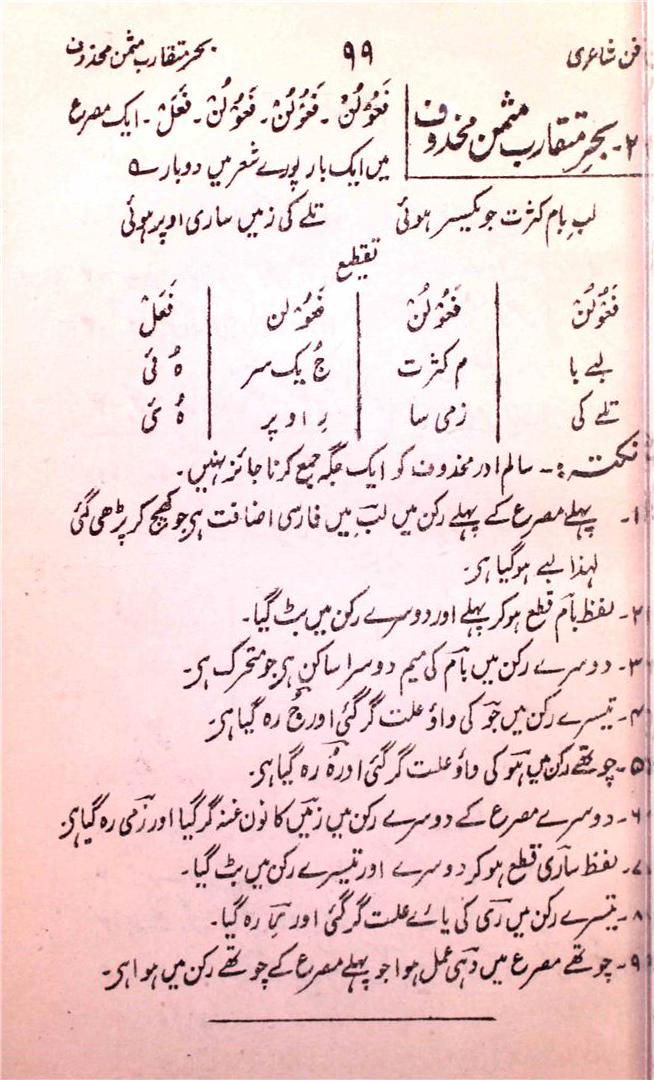 فن شاعری ۹۹ بحر متقارب مثمن محذوف
۲۔ بحرِ متقارب مثمن محذوف
فَعُوْلُنْ۔ فَعُوْلُنْ۔ فَعُوْلُنْ۔ فَعَلْ۔ ایک مصرع
میں ایک بار پورے شعر میں دوبارے
لبِ بام کثرت جو یکسر ہوئی تلے کی زمیں ساری اوپر ہوئی
تقطیع
فَعُوْلُنْ فَعُوْلُنْ فَعُوْلن فَعَلْ
لبے با م کثرت جُ یک سر ہُ ئی
تلے کی زمی سا رِ او پر ہُ ئی
نکتہ:۔ سالم اور محذوف کو ایک جگہ جمع کرنا جائز نہیں۔
۱۔ پہلے مصرع کے پہلے رکن میں لبِ میں فارسی اضافت ہی جو کھینچ کر پڑھی گئی
لہذا لبے ہو گیا ہی۔
۲۔ لفظ بام قطع ہو کر پہلے اور دوسرے رکن میں بٹ گیا۔
۳۔ دوسرے رکن میں بام کی میم دوسرا ساکن ہی جو متحرک ہی۔
۴۔ تیسرے رکن میں جو کی واؤ علت گر گئی اور جُ رہ گیا ہی۔
۵۔ چوتھے رکن میں ہو کی واؤ علت گر گئی اور ہُ رہ گیا ہی۔
۶۔ دوسرے مصرع کے دوسرے رکن میں زمیں کا نون غنہ گر گیا اور زمی رہ گیا ہی۔
۷۔ لفظ ساری قطع ہو کر دوسرے اور تیسرے رکن میں بٹ گیا۔
۸۔ تیسرے رکن میں ری کی یائے علت گر گئی اور رِ رہ گیا۔
۹۔ چوتھے مصرع میں وہی عمل ہوا جو پہلے مصرع کے چوتھے رکن میں ہوا ہی۔